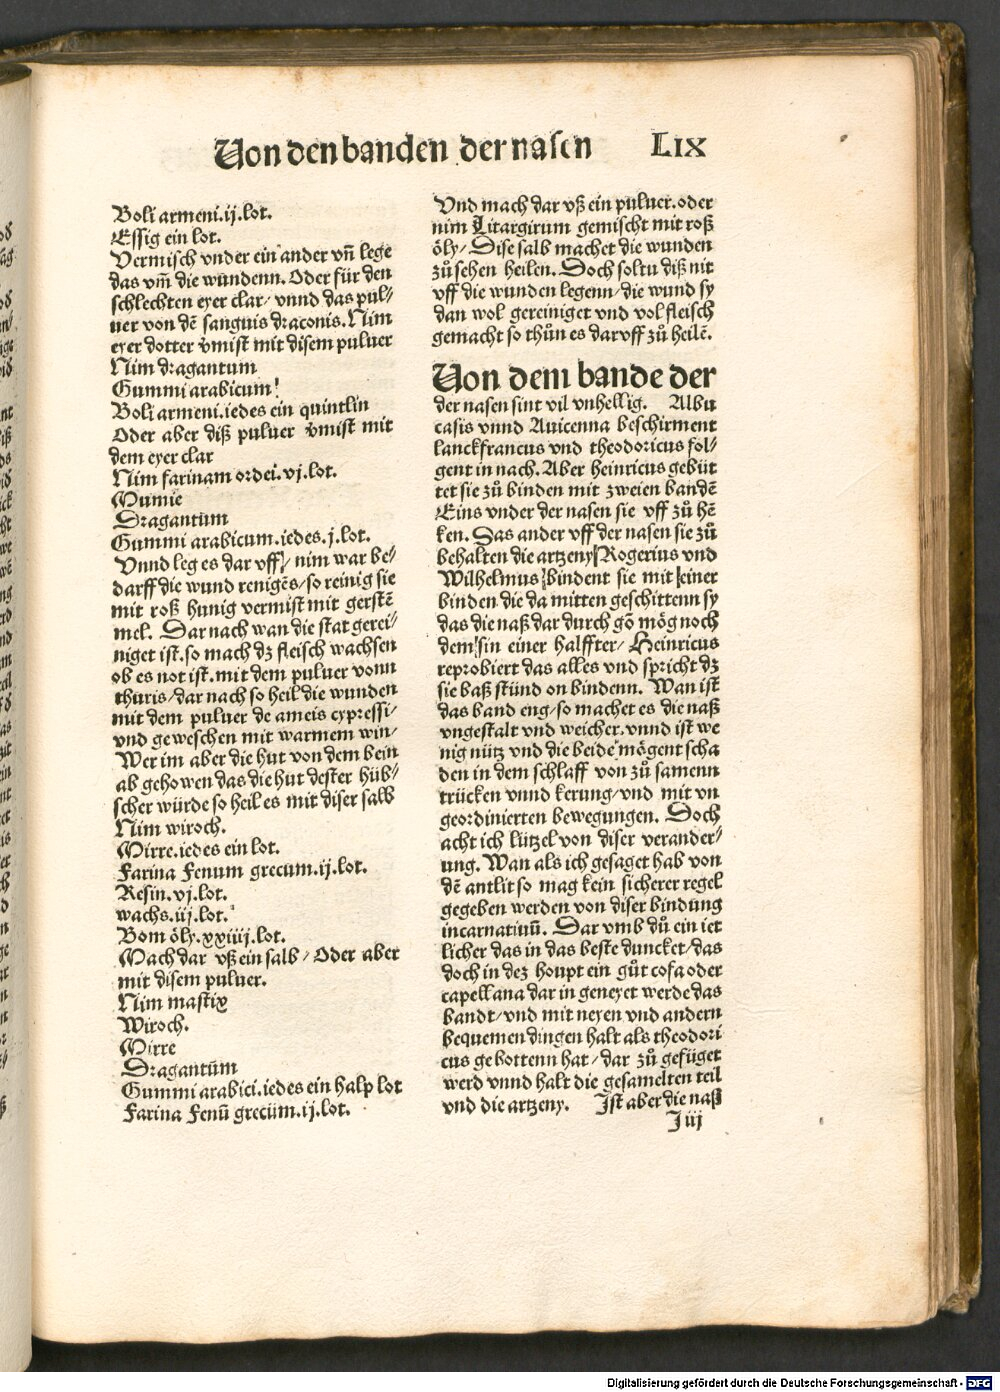 Von den banden der nasen LIX
Boli armeni.ij.lot.
Essig ein lot.
Vermisch vnder ein ander vn̄ lege
das vm̄ die wundenn. Oder für den
schlechten eyer clar/ vnnd das pul/
uer von dē sanguis draconis. Nim
eyer dotter v̄mist mit disem puluer
Nim dragantum
Gummi arabicum!
Boli armeni.iedes ein quintlin
Oder aber diß puluer v̄mist mit
dem eyer clar
Nim farinam ordei.vj.lot.
Mumie
Dragantum
Gummi arabicum.iedes.j.lot.
Vnnd leg es dar vff/ nim war be/
darff die wund renigēs/so reinig sie
mit roß hunig vermist mit gerstē
mel. Dar nach wan die stat gerei/
niget ist.so mach dz fleisch wachsen
ob es not ist.mit dem puluer vonn
thuris/dar nach so heil die wunden
mit dem puluer de ameis cypressi/
vnd geweschen mit warmem win/
Wer im aber die hut von dem bein
ab gehowen das die hut dester hüb/
scher würde so heil es mit diser salb
Nim wiroch.
Mirre.iedes ein lot.
Farina Fenum grecum.ij.lot.
Resin.vj.lot.
wachs.iij.lot.
Bom öly.xxiiij.lot.
Mach dar vß ein salb/ Oder aber
mit disem puluer.
Nim mastix
Wiroch.
Mirre
Dragantūm
Gummi arabici.iedes ein halp lot
Farina Fenū grecūm.ij.lot.
Vnd mach dar vß ein puluer.oder
nim Litargirum gemischt mit roß
öly/ Dise salb machet die wunden
zů sehen heilen. Doch soltu diß nit
vff die wunden legenn/die wund sy
dan wol gereiniget vnd vol fleisch
gemacht so thůn es dar vff zů heilē.
Von dem bande der
der nasen sint vil vnhellig. Albu
casis vnnd Auicenna beschirment
lanckfrancus vnd theodoricus fol/
gent in nach. Aber heinricus gebüt
tet sie zů binden mit zweien bandē
Eins vnder der nasen sie vff zů hē
ken. Das ander vff der nasen sie zů
behalten die artzeny Rogerius vnd
Wilhelmus bindent sie mit einer
binden die da mitten geschittenn sy
das die naß dar durch gō mög noch
dem sin einer halffter/ Heinricus
reprobiert das alles vnd spricht dz
sie baß stünd on bindenn. Wan ist
das band eng/so machet es die naß
vngestalt vnd weicher.vnnd ist we
nig nütz vnd die beide mögent scha
den in dem schlaff von zů samenn
trücken vnnd kerung/vnd mit vn
geordinierten bewegungen. Doch
acht ich lützel von diser verander/
ung. Wan als ich gesaget hab von
dē antlit so mag kein sicherer regel
gegeben werden von diser bindung
incarnatiuū. Dar vmb dů ein iet
licher das in das beste duncket/das
doch in dez houpt ein gůt cofa oder
capellana dar in geneyet werde das
bandt/vnd mit neyen vnd andern
bequemen dingen halt als theodori
cus gebottenn hat/dar zů gefüget
werd vnnd halt die gesamelten teil
vnd die artzeny. Ist aber die naß
J iij
Digitalisierung gefördert durch die Deutsche Forschungsgemeinschaft - DFG